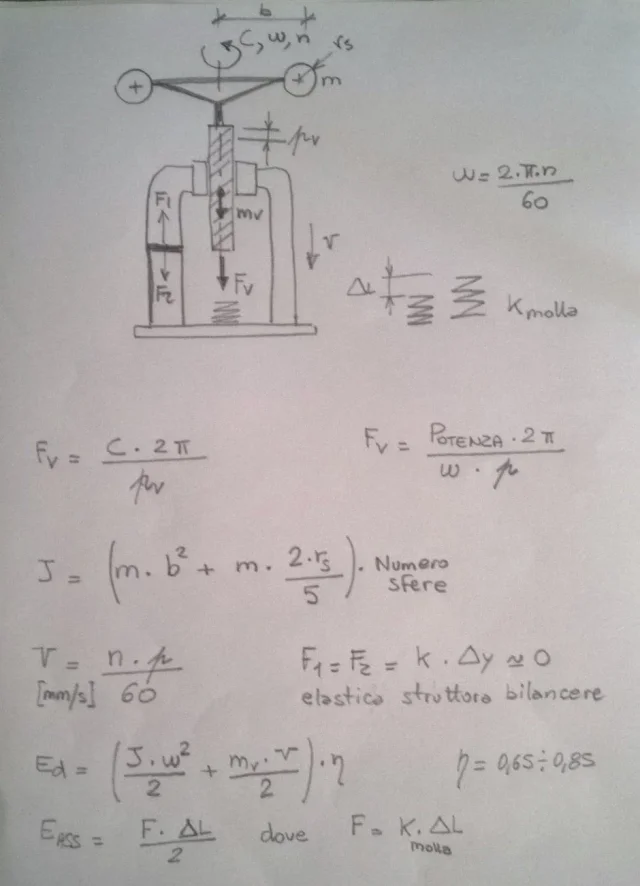 b
C, w, n
rs
m
pv
w = 2·π·n / 60
F1
mv
v
F2
Fv
ΔL
K molla
Fv = C · 2π / pv
Fv = POTENZA · 2π / w · p
J = (m · b² + m · 2·rs / 5) · Numero sfere
V = n · p / 60
[mm/s]
F1 = F2 = K · Δy ≃ 0
elastica struttura bilancere
Ed = (J·w² / 2 + mv·v / 2) · η
η = 0,65 ÷ 0,85
EASS = F · ΔL / 2 dove F = K · ΔL
molla